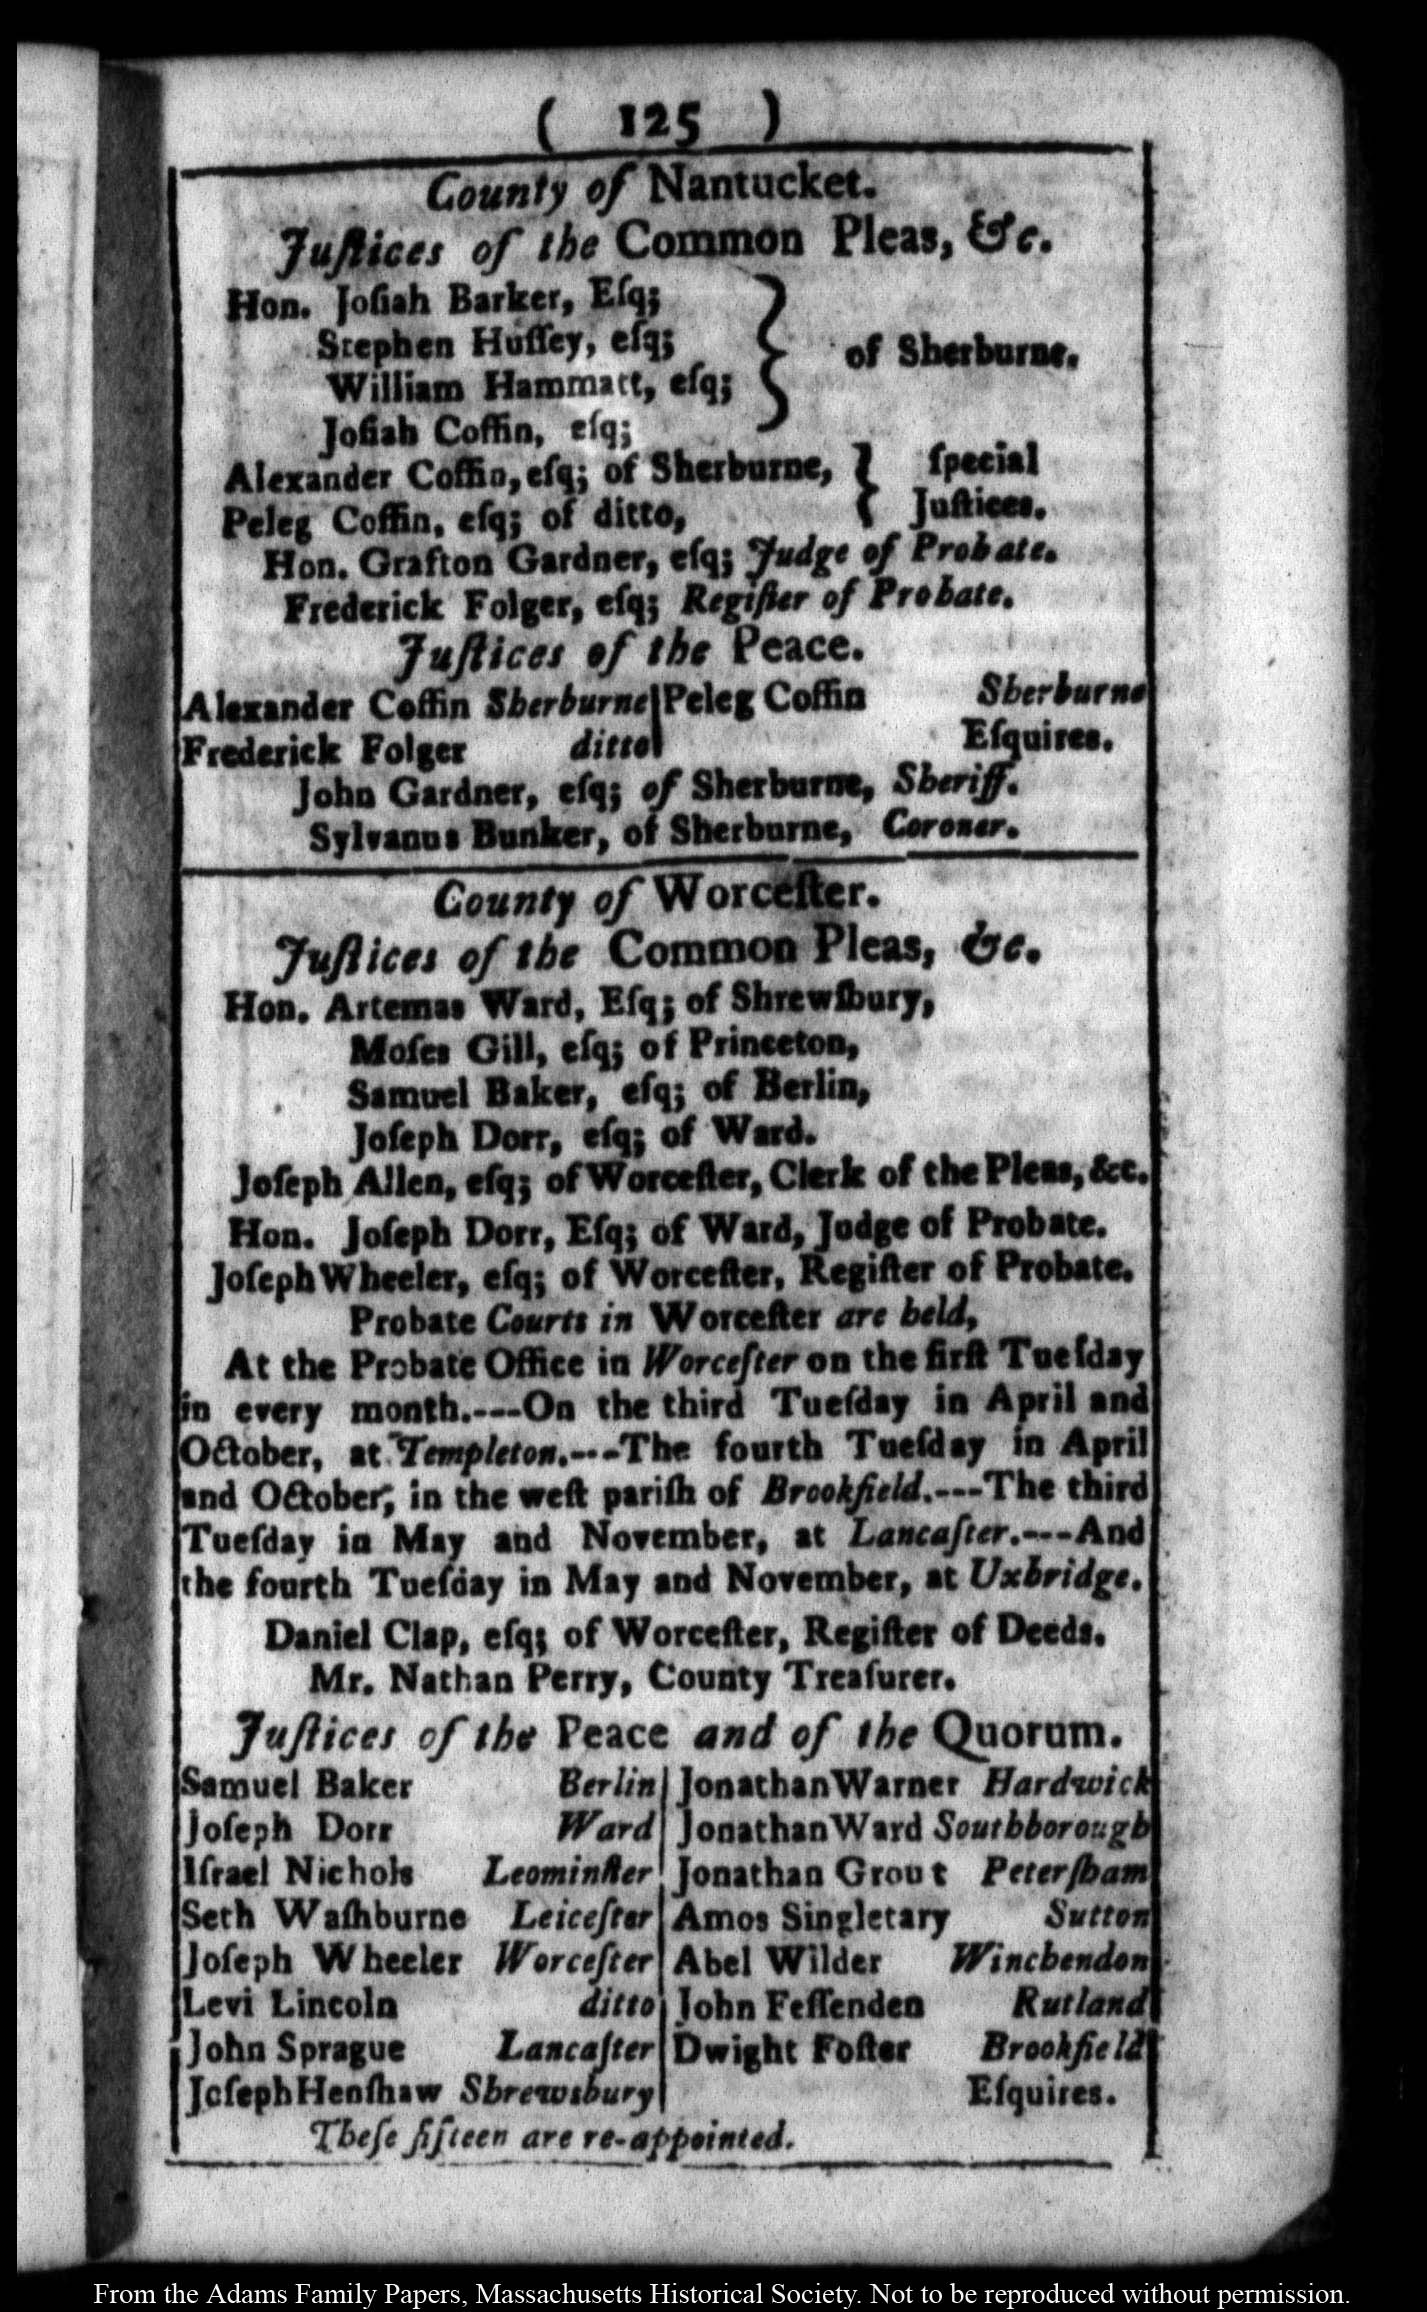 ( 125 )
County of Nantucket.
Juſtices of the Common Pleas, &c.
Hon. Joſiah Barker, Eſq;
Stephen Huſſey, eſq;
William Hammatt, eſq;
Joſiah Coffin, eſq;
} of Sherburne.
Alexander Coffin, eſq; of Sherburne, } ſpecial
Peleg Coffin, eſq; of ditto, Juſtices.
Hon. Grafton Gardner, eſq; Judge of Probate.
Frederick Folger, eſq; Regiſter of Probate.
Juſtices of the Peace.
Alexander Coffin Sherburne | Peleg Coffin Sherburne
Frederick Folger ditto | Eſquires.
John Gardner, eſq; of Sherburne, Sheriff.
Sylvanus Bunker, of Sherburne, Coroner.
County of Worceſter.
Juſtices of the Common Pleas, &c.
Hon. Artemas Ward, Eſq; of Shrewſbury,
Moſes Gill, eſq; of Princeton,
Samuel Baker, eſq; of Berlin,
Joſeph Dorr, eſq; of Ward.
Joſeph Allen, eſq; of Worceſter, Clerk of the Pleas, &c.
Hon. Joſeph Dorr, Eſq; of Ward, Judge of Probate.
Joſeph Wheeler, eſq; of Worceſter, Regiſter of Probate.
Probate Courts in Worceſter are held,
At the Probate Office in Worceſter on the firſt Tueſday
in every month.---On the third Tueſday in April and
October, at Templeton.---The fourth Tueſday in April
and October, in the weſt pariſh of Brookfield.---The third
Tueſday in May and November, at Lancaſter.---And
the fourth Tueſday in May and November, at Uxbridge.
Daniel Clap, eſq; of Worceſter, Regiſter of Deeds.
Mr. Nathan Perry, County Treaſurer.
Juſtices of the Peace and of the Quorum.
Samuel Baker Berlin | Jonathan Warner Hardwick
Joſeph Dorr Ward | Jonathan Ward Southborough
Iſrael Nichols Leominſter | Jonathan Grout Peterſham
Seth Waſhburne Leiceſter | Amos Singletary Sutton
Joſeph Wheeler Worceſter | Abel Wilder Winchendon
Levi Lincoln ditto | John Feſſenden Rutland
John Sprague Lancaſter | Dwight Foſter Brookfield
Joſeph Henſhaw Shrewsbury | Eſquires.
Theſe fifteen are re-appointed.
From the Adams Family Papers, Massachusetts Historical Society. Not to be reproduced without permission.